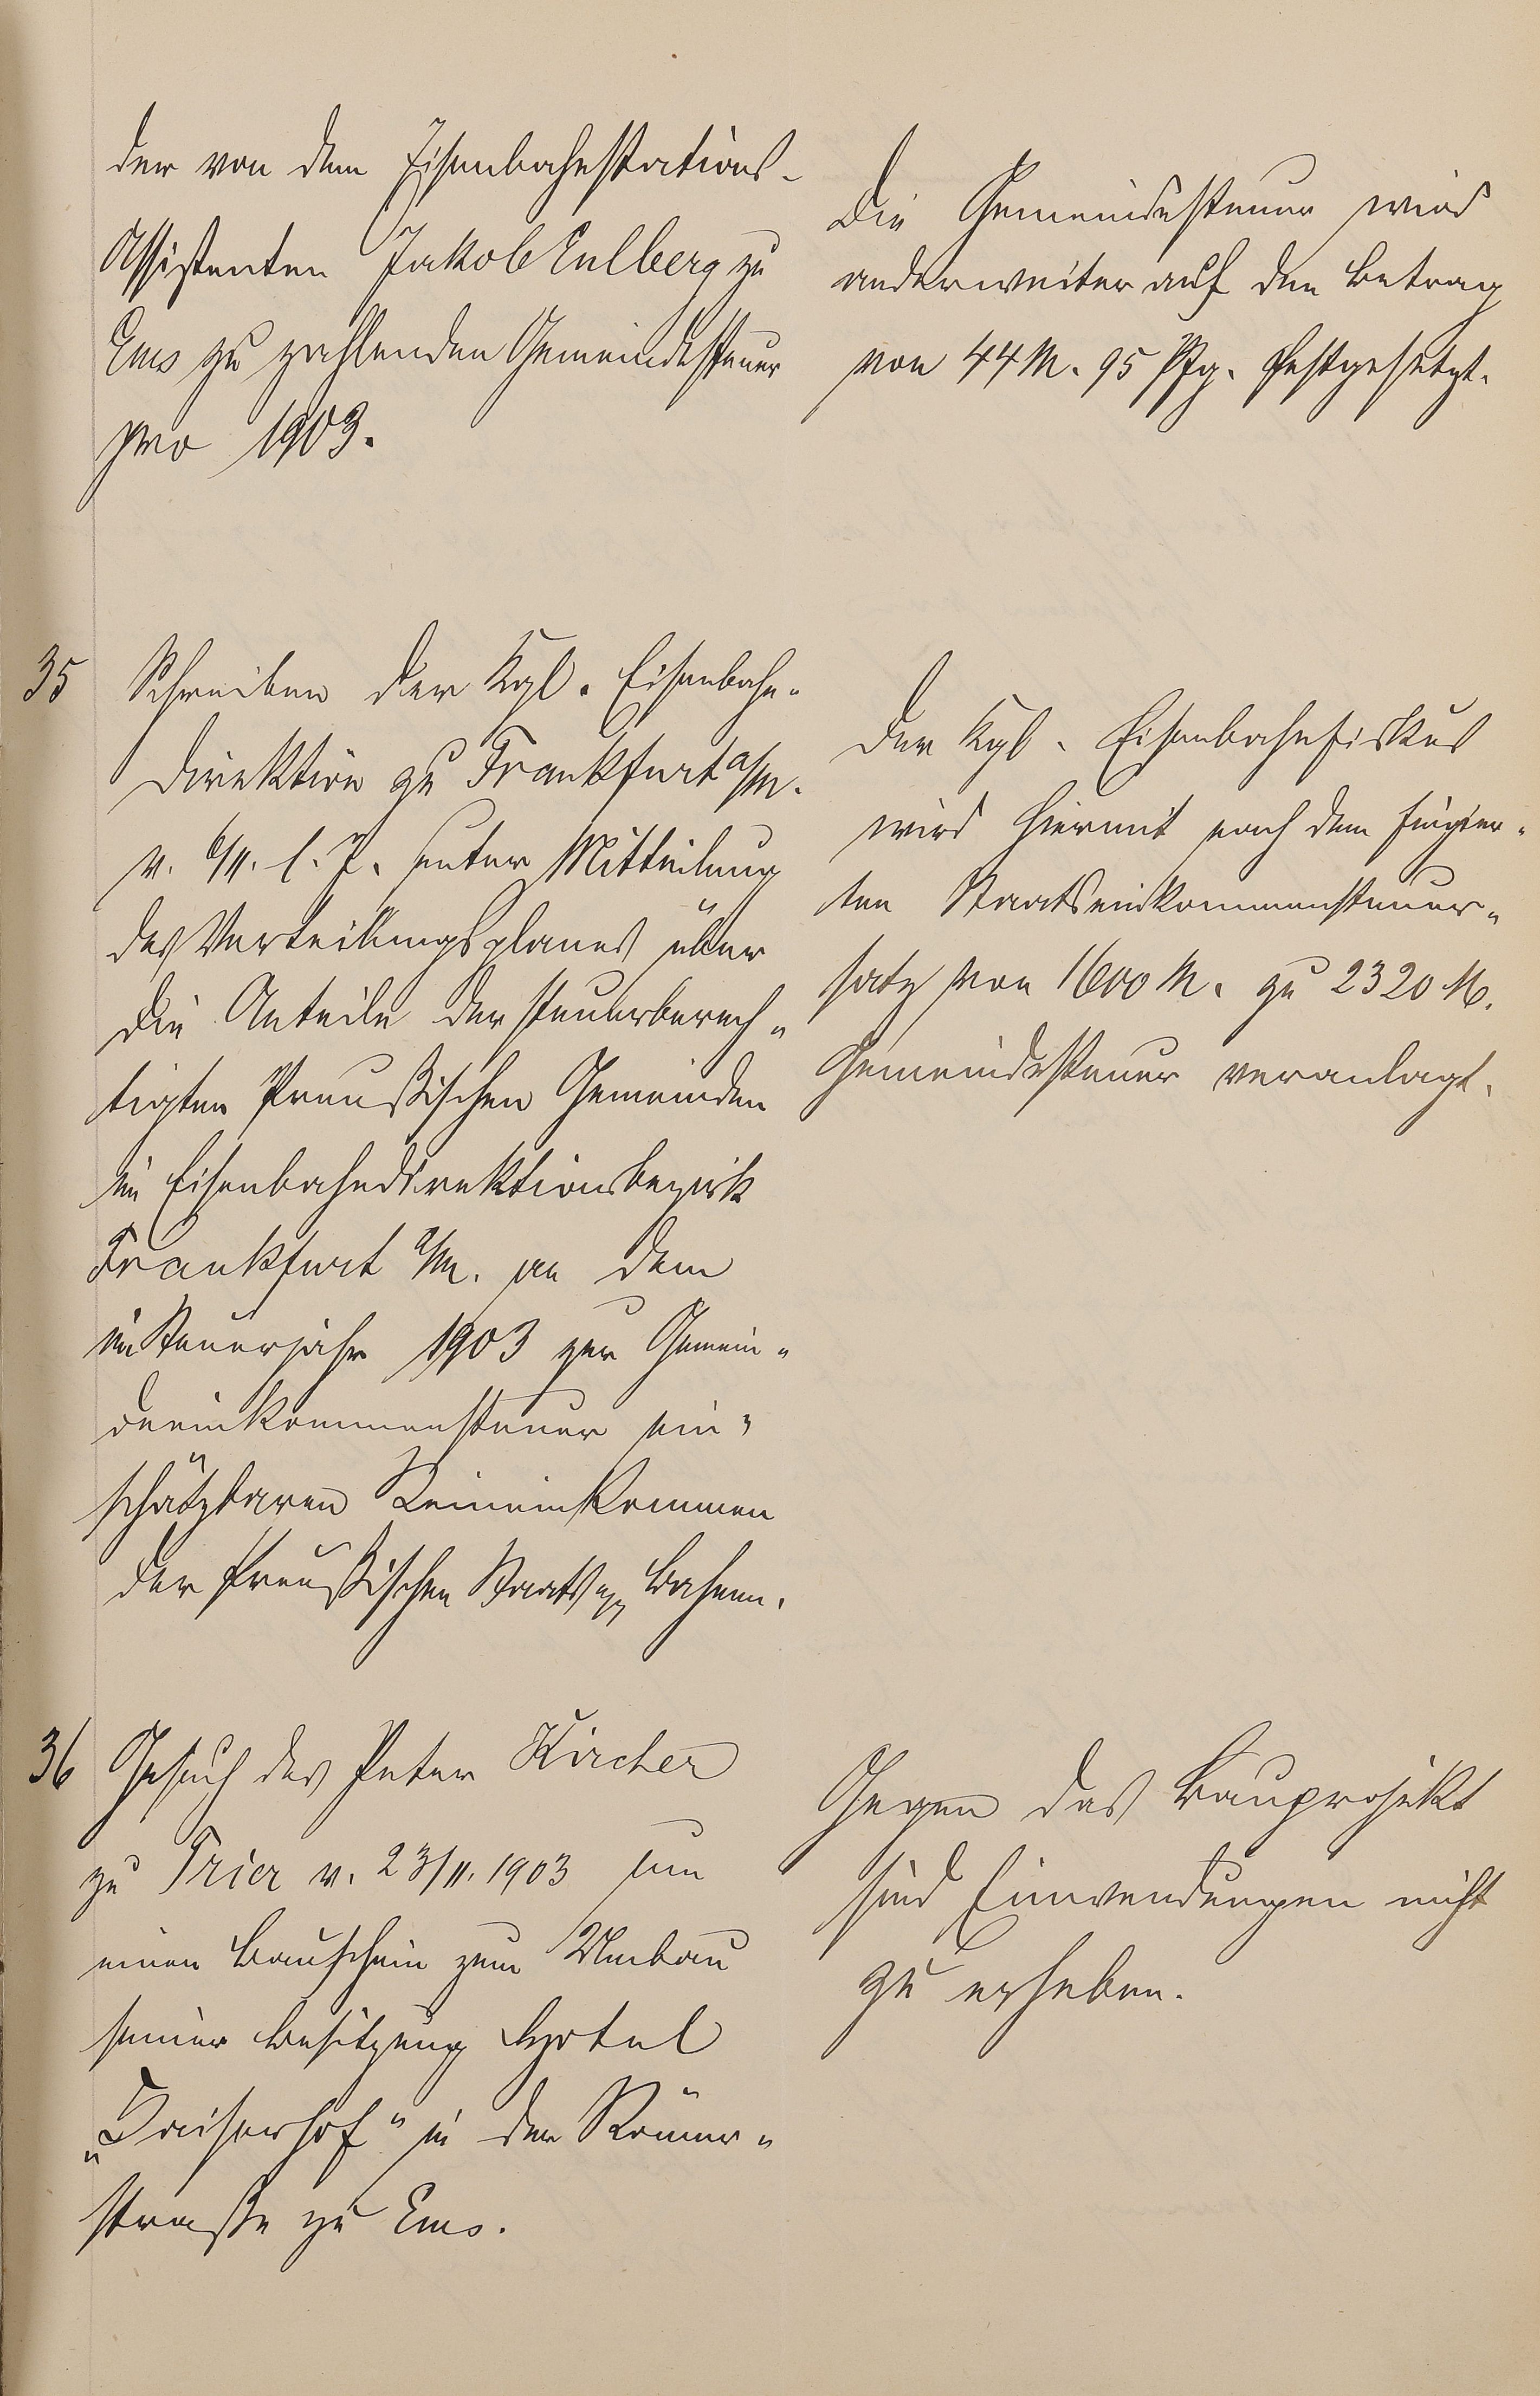 der von dem Eisenbahnstations-
Assistenten Jakob Eulberg zu
Ems zu zahlenden Gemeindesteuer
pro 1903.
Die Gemeindesteuer wird
anderweiter auf den Betrag
von 44 M. 95 Pfg. festgesetzt.
35
Schreiben der Kgl. Eisenbahn-
direktion zu Frankfurt a/M.
v. 6/11. l. J. unter Mitteilung
des Verteilungsplanes über
die Anteile der steuerberech-
tigten Preußischen Gemeinden
im Eisenbahndirektionsbezirk
Frankfurt a/M. an dem
im Steuerjahr 1903 zur Gemein-
deeinkommensteuer ein-
schätzbaren Reineinkommen
der Preußischen Staats Bahnen.
Der Kgl. Eisenbahnfiskus
wird hiermit nach dem fingier-
ten Staatseinkommensteuer-
satz von 1600 M. zu 2320 M.
Gemeindesteuer veranlagt.
36
Gesuch des Peter Kircher
zu Trier v. 23/11. 1903 um
einen Bauschein zum Umbau
seiner Besitzung Hotel
„Kaiserhof" in der Römer-
straße zu Ems.
Gegen das Bauprojekt
sind Einwendungen nicht
zu erheben.